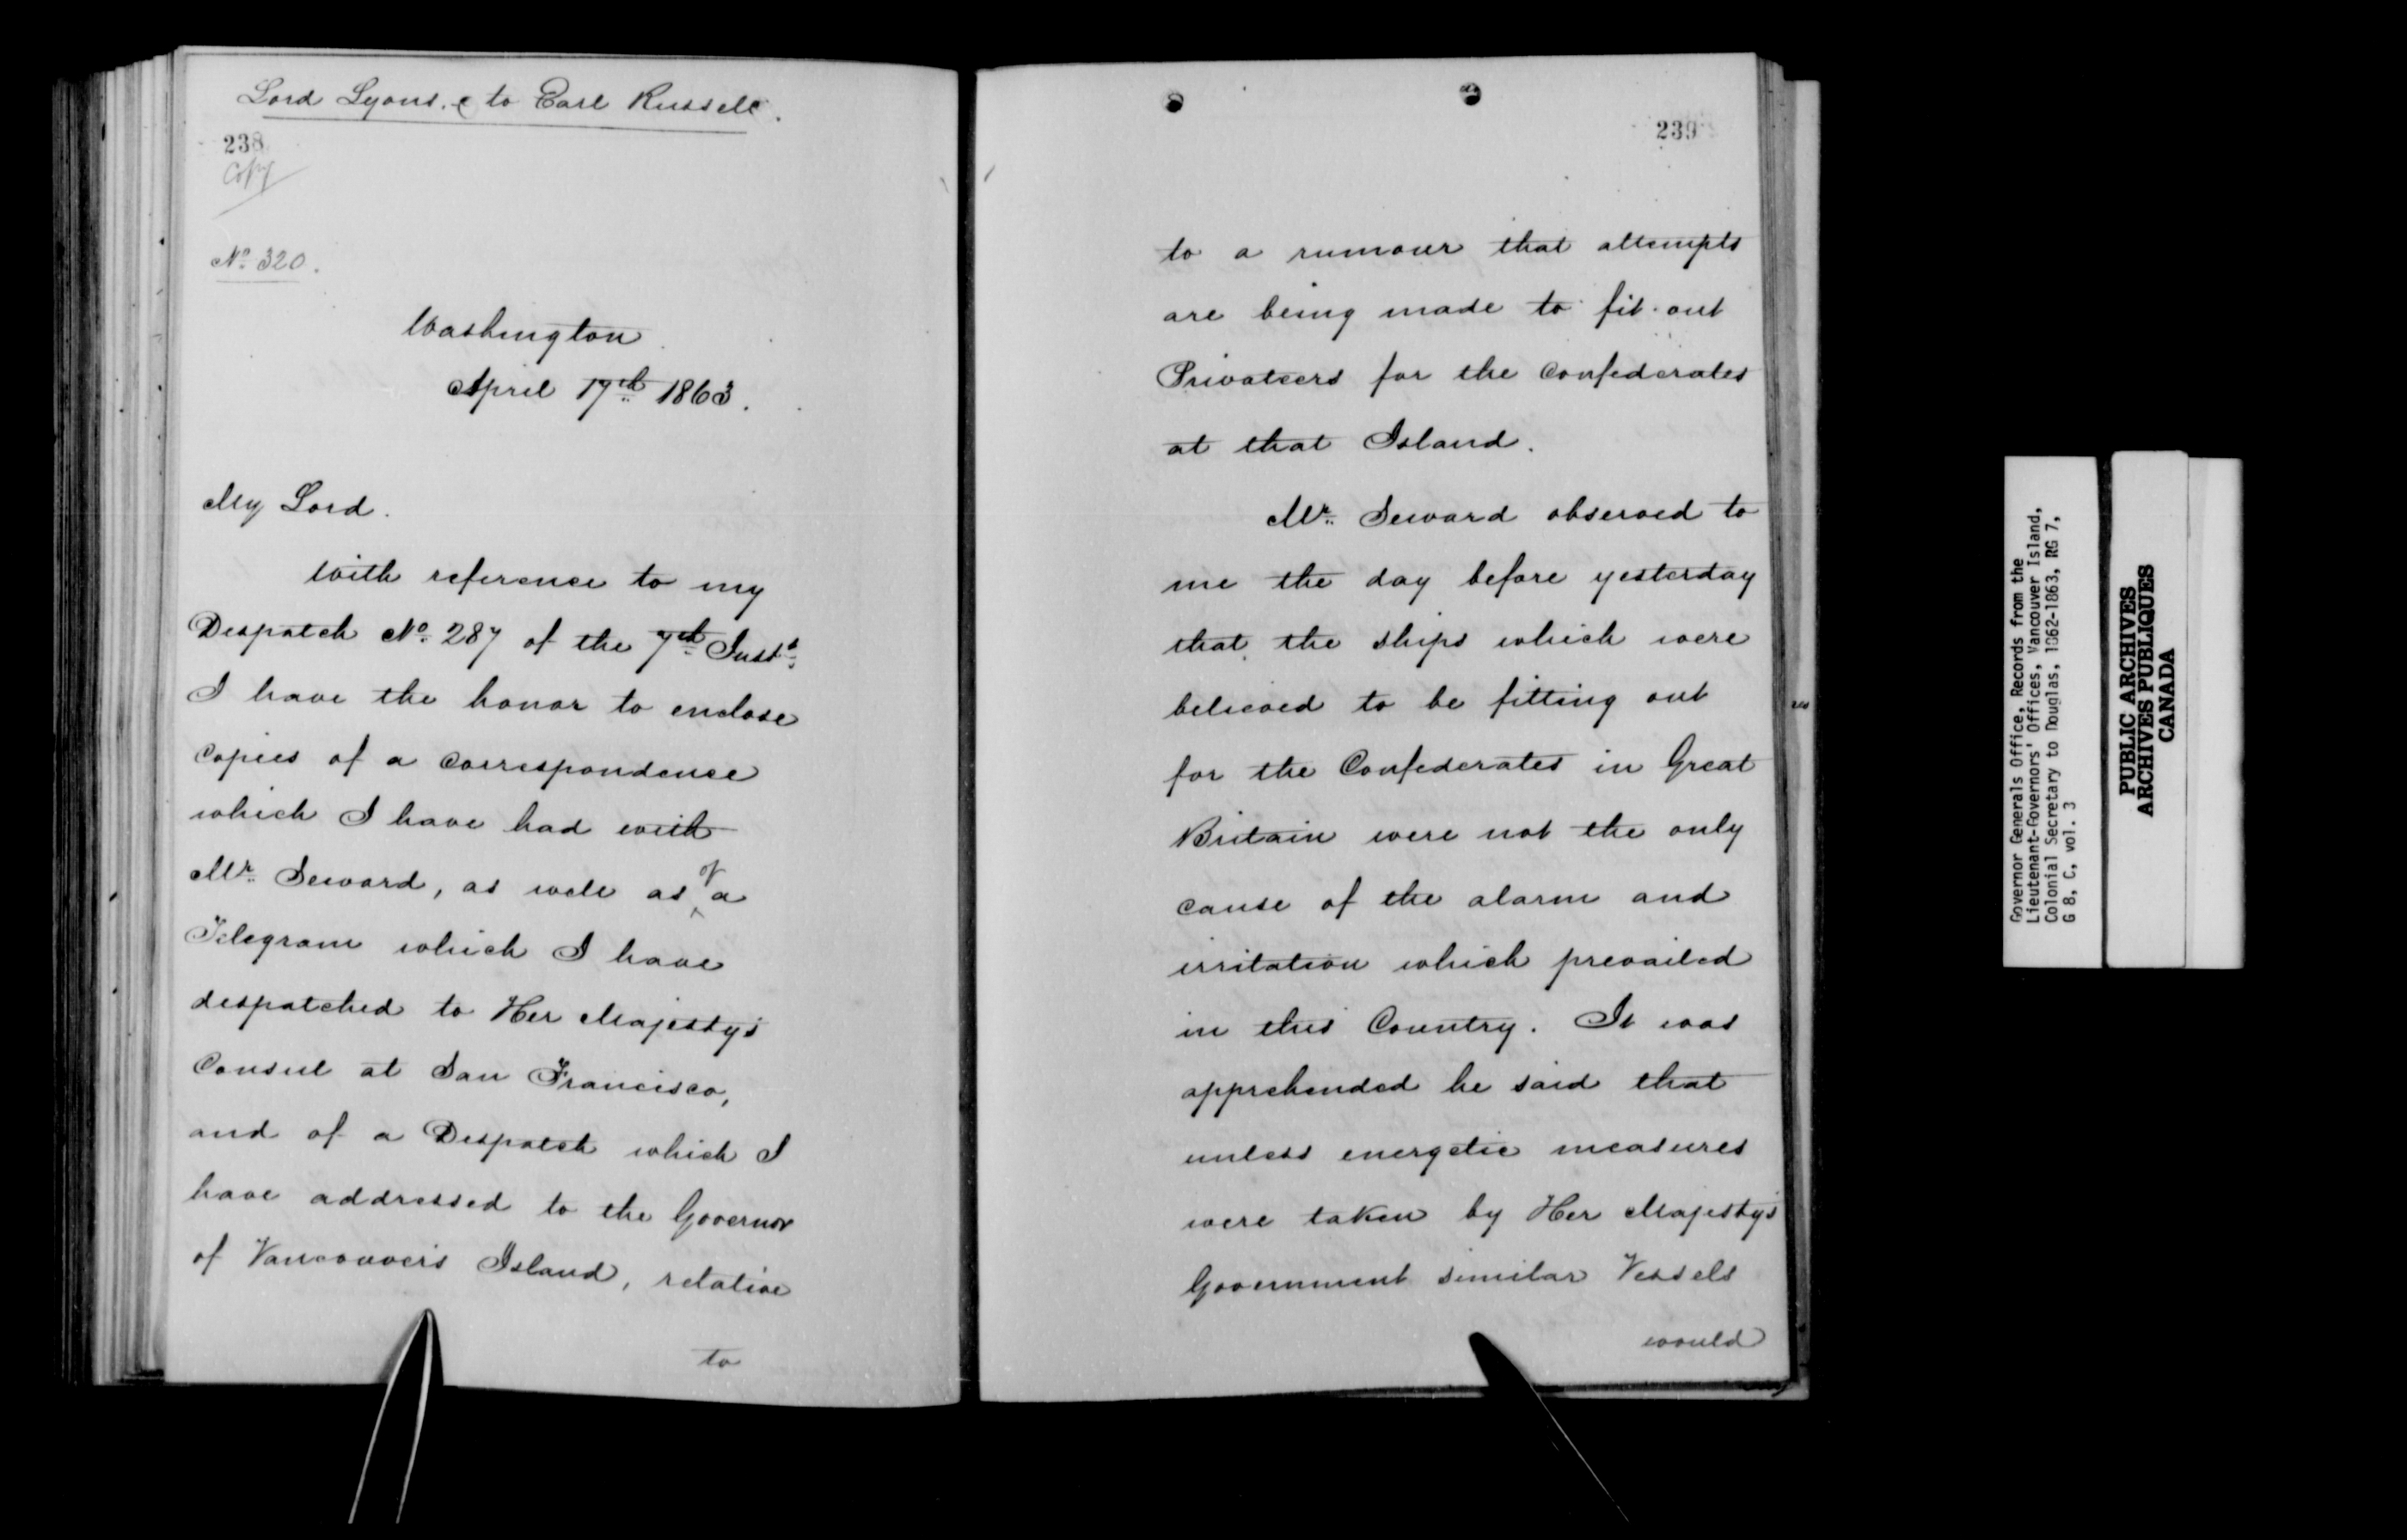 Lord Lyons. to Earl Russell.
238
Copy
No. 320.
Washington
April 17th 1863.
My Lord.
With reference to my
Despatch No. 287 of the 7th Inst.
I have the honor to enclose
Copies of a Correspondence
which I have had with
Mr. Seward, as well as of a
Telegram which I have
despatched to Her Majesty's
Consul at San Francisco,
and of a Despatch which I
have addressed to the Governor
of Vancouver's Island, relative
to
239
to a rumour that attempts
are being made to fit out
Privateers for the Confederates
at that Island.
Mr. Seward observed to
me the day before yesterday
that the ships which were
believed to be fitting out
for the Confederates in Great
Britain were not the only
cause of the alarm and
irritation which prevailed
in this Country. It was
apprehended he said that
unless energetic measures
were taken by Her Majesty's
Government similar Vessels
would
Governor Generals Office, Records from the
Lieutenant-Governors' Offices, Vancouver Island,
Colonial Secretary to Douglas, 1862-1863, RG 7,
G 8, C, vol. 3
PUBLIC ARCHIVES
ARCHIVES PUBLIQUES
CANADA